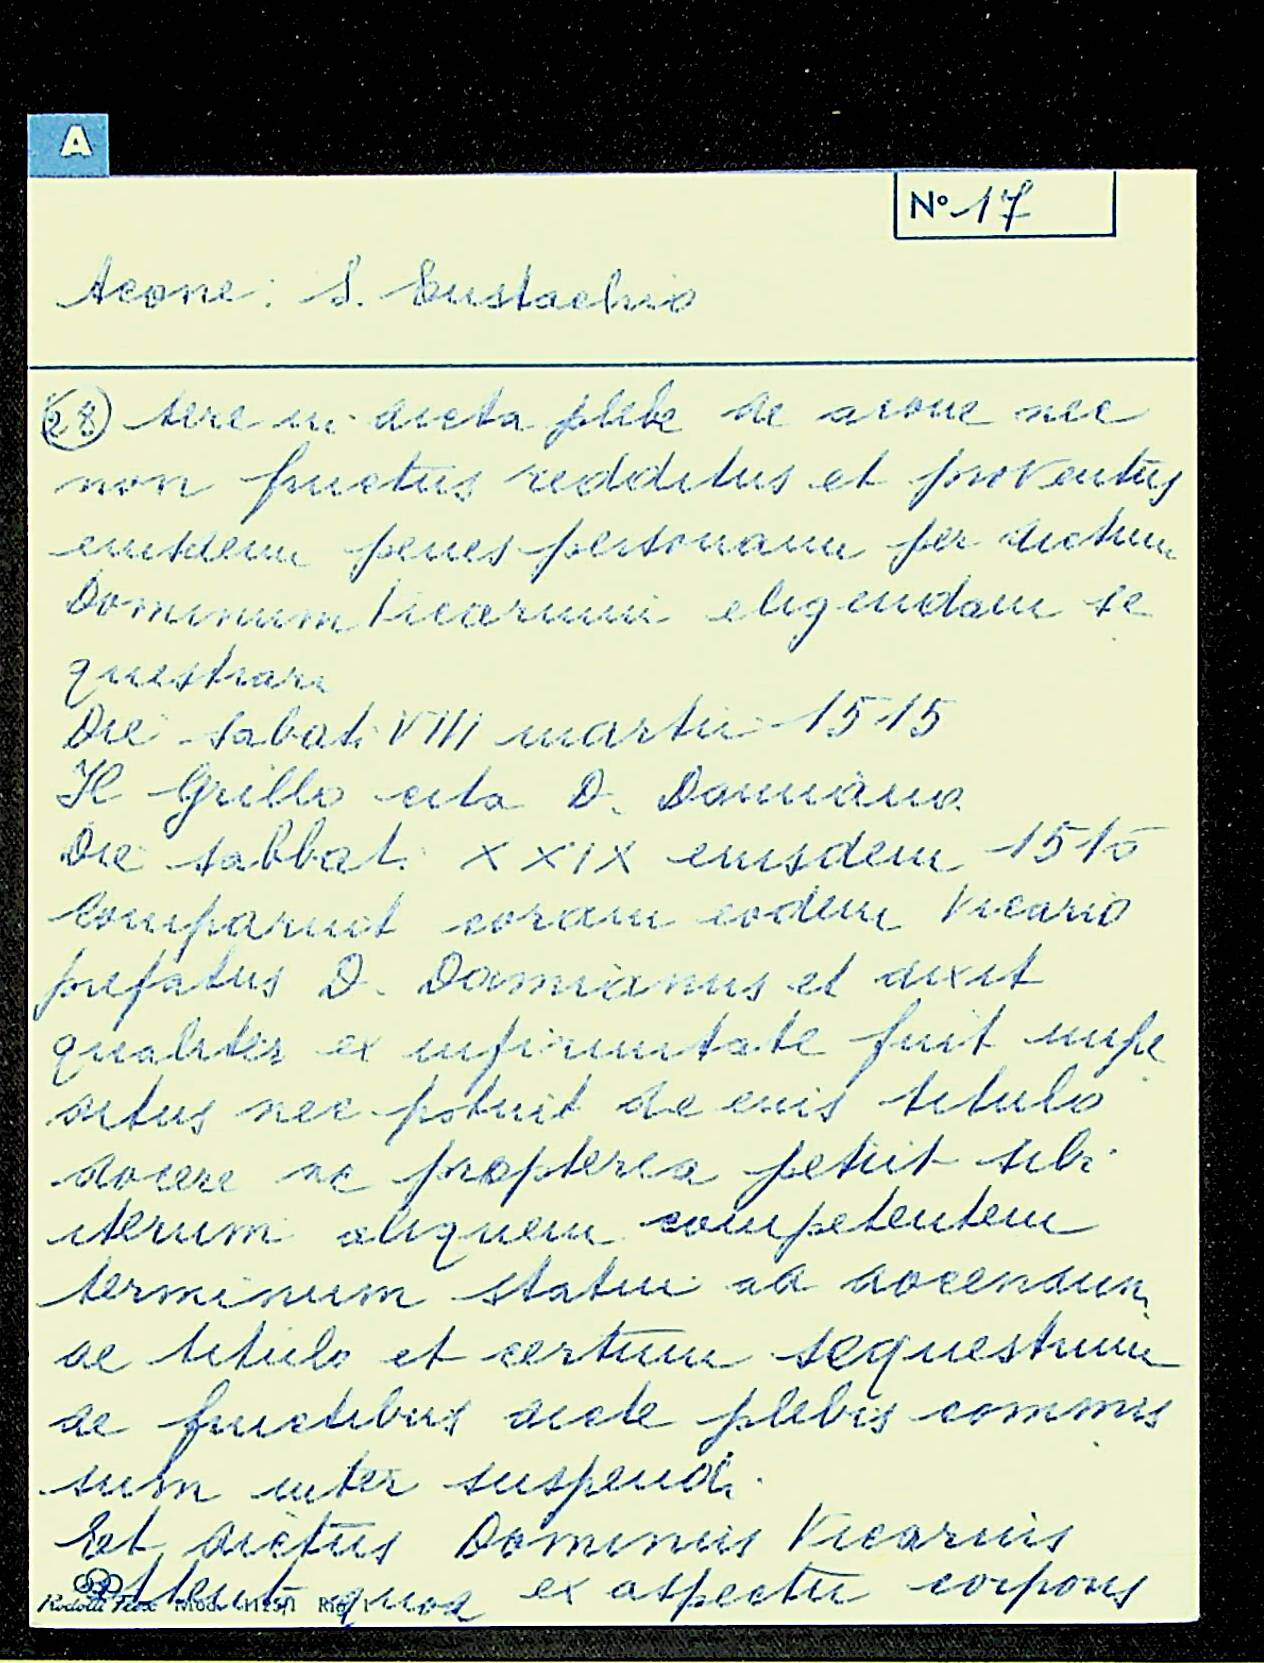 A
N° 17
Acone: S. Eustachio
28 tere in dicta plebe de acone nec
non fructus redditus et proventus
eiusdem penes personam per dictum
Dominum Vicarium eligendam se
questrari
Die sabati VIII martii 1515
Il Grillo cita D. Damiano
Die sabbati XXIX eiusdem 1515
Comparuit coram eodem Vicario
prefatus D. Damianus et dixit
qualiter ex infirmitate fuit impe
ditus nec potuit de eius titulo
docere ac propterea petiit sibi
iterum aliquem competentem
terminum statui ad docendum
de titulo et certum sequestrum
de fructibus dicte plebis commis
sum inter suspendi.
Et dictus Dominus Vicarius
quod ex aspectu corporis